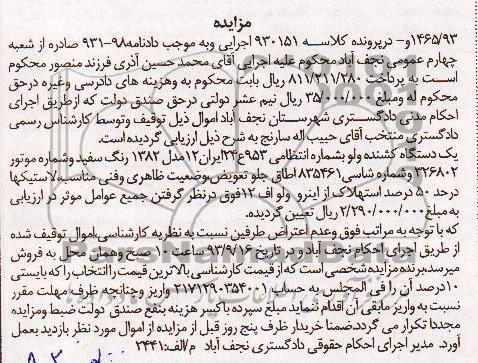 مزایده
۱۴۶۵/۹۳و- درپرونده کلاسه ۹۳۰۱۵۱ اجرایی وبه موجب دادنامه۹۸-۹۳۱ صادره از شعبه
چهارم عمومی نجف آباد محکوم علیه اجرایی آقای محمد حسین آذری فرزند منصور محکوم
است به پرداخت ۸۱۱/۲۱۱/۲۸۰ ریال بابت محکوم به وهزینه های دادرسی وغیره درحق
محکوم له ومبلغ ۳۵/۰۰۰/۰۰۰ ریال نیم عشر دولتی درحق صندق دولت که ازطریق اجرای
احکام مدنی دادگستری شهرستان نجف آباد اموال ذیل توقیف وتوسط کارشناس رسمی
دادگستری منتخب آقای حبیب اله سارنج به شرح ذیل ارزیابی گردیده است.
یک دستگاه کشنده ولو بشماره انتظامی ۹۵۳ع۲۴ایران۱۲مدل ۱۳۸۲ رنگ سفید وشماره موتور
۳۲۶۸۰۲ وشماره شاسی۸۳۵۴۶۱ اطاق جلو تعویض وضعیت ظاهری وفنی مناسب،لاستیکها
درحد ۵۰ درصد استهلاک از اینرو ولو اف۱۲فوق درنظر گرفتن جمیع عوامل موثر در ارزیابی
به مبلغ ۲/۲۹۰/۰۰۰/۰۰۰ ریال تعیین گردیده.
که با توجه به مراتب فوق وعدم اعتراض طرفین نسبت به نظریه کارشناسی،اموال توقیف شده
از طریق اجرای احکام نجف آبادو در تاریخ ۹۳/۹/۱۶ ساعت ۱۰ صبح وهمان محل به فروش
میرسد.برنده مزایده شخصی است که از قیمت کارشناسی بالاترین قیمت را انتخاب را که بایستی
۱۰درصد آن را فی المجلس به حساب ۲۱۷۱۲۹۰۳۵۴۰۰۱ واریز وچنانچه ظرف مهلت مقرر
نسبت به واریز مابقی آن اقدام ننماید مبلغ سپرده باکسر هزینه بنفع صندق دولت ضبط ومزایده
مجددا تکرار می گردد.ضمنا خریدار ظرف پنج روز قبل از مزایده از اموال مورد نظر بازدید بعمل
آورد. مدیر اجرای احکام حقوقی دادگستری نجف آباد م/الف:۲۴۴۱